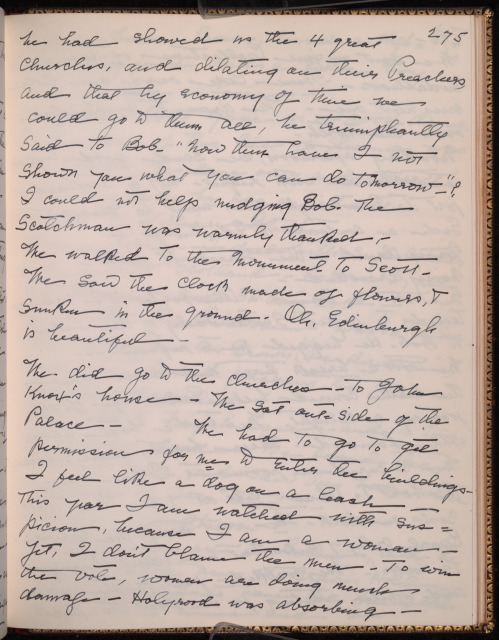 275
he had showed us the 4 great
Churches, and dilating on their Preachers
and that by economy of time we
could go to them all, he triumphantly
said to Bob- "Now then have I not
shown you what you can do tomorrow-"?
I could not help nudging Bob. The
Scotchman was warmly thanked.-
We walked to the Monument to Scott-
We saw the Clock made of flowers, &
sunken in the ground. Oh, Edinburgh
is beautiful-
We did go to the churches - to John
Knox's house - We sat out-side of the
Palace - We had to go to get
permission for me to enter the buildings-
I feel like a dog on a leash -
This year I am watched with sus=
picion, because I am a woman-
Yet, I don't blame the men - To win
the vote, women are doing much
damage - Holyrood was absorbing -